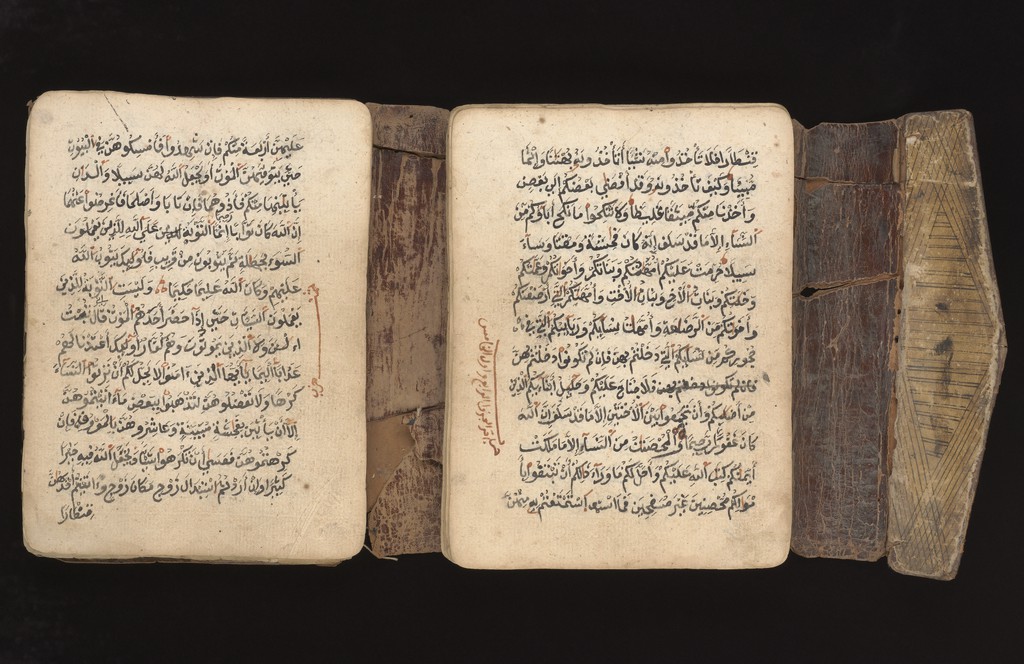 عليهن أربعة منكم فإن شهدوا فأمسكوهن في البيوت
حتى يتوفيهن الموت أو يجعل الله لهن سبيلا والذان
يأتينها منكم فآذوهما فإن تابا وأصلحا فأعرضوا عنهما
إن الله كان توابا رحيما إنما التوبة على الله للذين يعملون
السوء بجهلة ثم يتوبون من قريب فأولئك يتوب الله
عليهم وكان الله عليما حكيما وليست التوبة للذين
يعملون السيئات حتى إذا حضر أحدهم الموت قال إني تبت
الن ولا الذين يموتون وهم كفار أولئك أعتدنا لهم
عذابا أليما يأيها الذين ءامنوا لا يحل لكم أن ترثوا النساء
كرها ولا تعضلوهن لتذهبوا ببعض ما ءاتيتموهن
إلا أن يأتين بفحشة مبينة وعاشروهن بالمعروف فإن
كرهتموهن فعسى أن تكرهوا شيئا ويجعل الله فيه خيرا
كثيرا وإن أردتم استبدال زوج مكان زوج وءاتيتم إحديهن
قنطارا
قنطارا فلا تأخذوا منه شيئا أتأخذونه بهتنا وإثما
مبينا وكيف تأخذونه وقد أفضى بعضكم إلى بعض
وأخذن منكم ميثقا غليظا ولا تنكحوا ما نكح آباؤكم من
النساء إلا ما قد سلف إنه كان فحشة ومقتا وساء
سبيلا حرمت عليكم أمهتكم وبناتكم وأخواتكم وعمتكم
وخلتكم وبنات الأخ وبنات الأخت وأمهتكم التي أرضعنكم
وأخوتكم من الرضعة وأمهت نسايكم وربايبكم التي في
حجوركم من نسايكم التي دخلتم بهن فإن لم تكونوا دخلتم بهن
فلا جناح عليكم وحليل أبنايكم الذين
من أصلبكم وأن تجمعوا بين الأختين إلا ما قد سلف إن الله
كان غفورا رحيما والمحصنت من النساء إلا ما ملكت
أيمنكم كتب الله عليكم وأحل لكم ما وراء ذالكم أن تبتغوا بأ
موالكم محصنين غير مسفحين فما استمتعتم به منهن